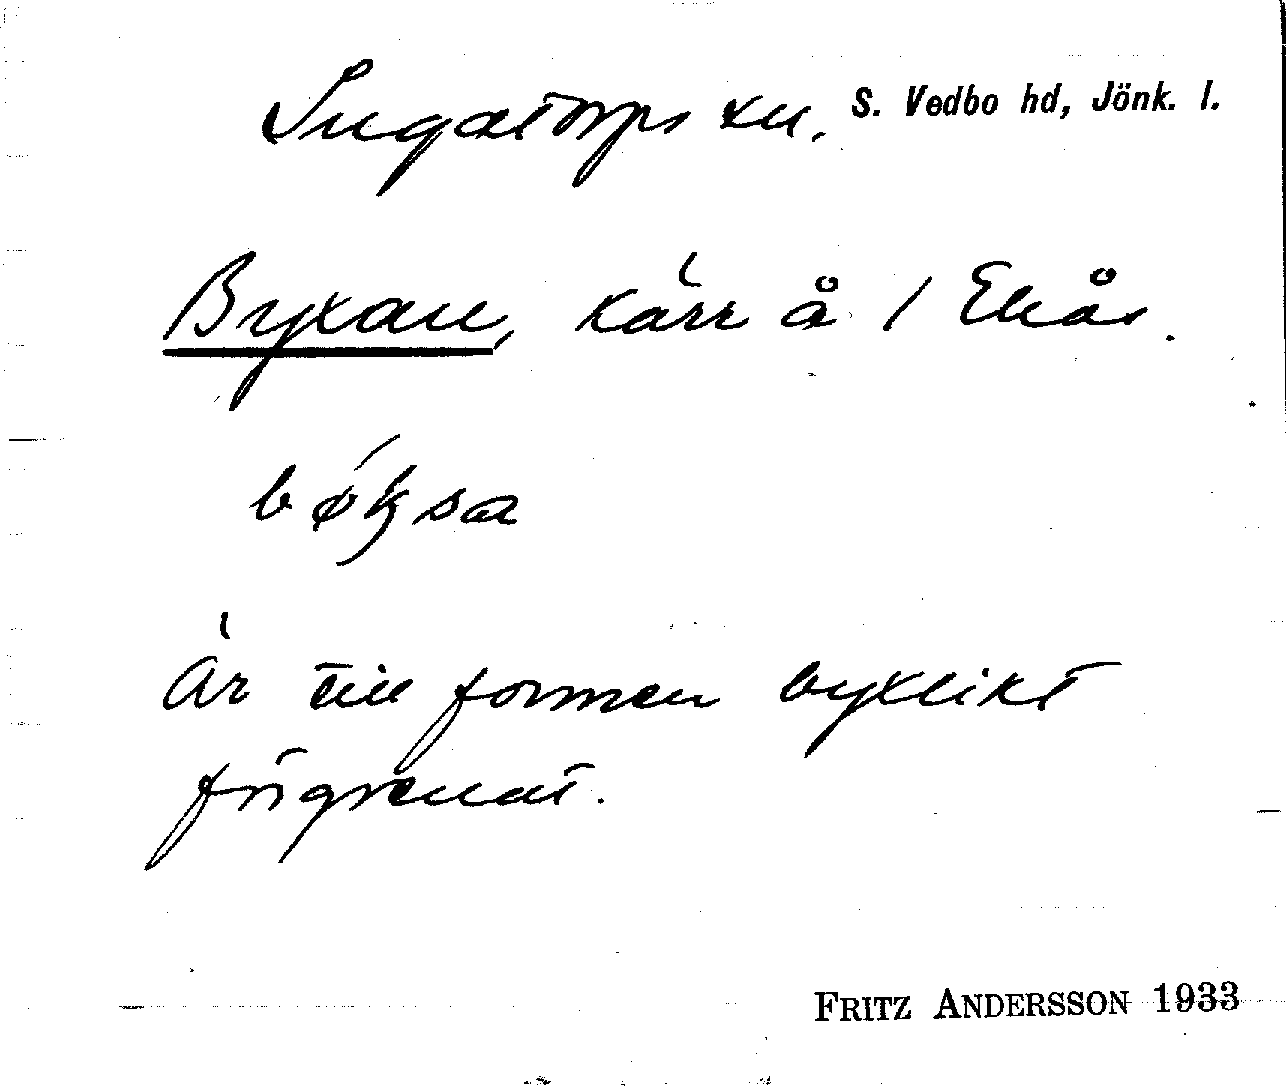 Ingatorps sn. S. Vedbo hd, Jönk. l.
Byxan, kärr å 1 Ekås.
bǿksa
Är till formen byxlikt
förgrenat.
FRITZ ANDERSSON 1933